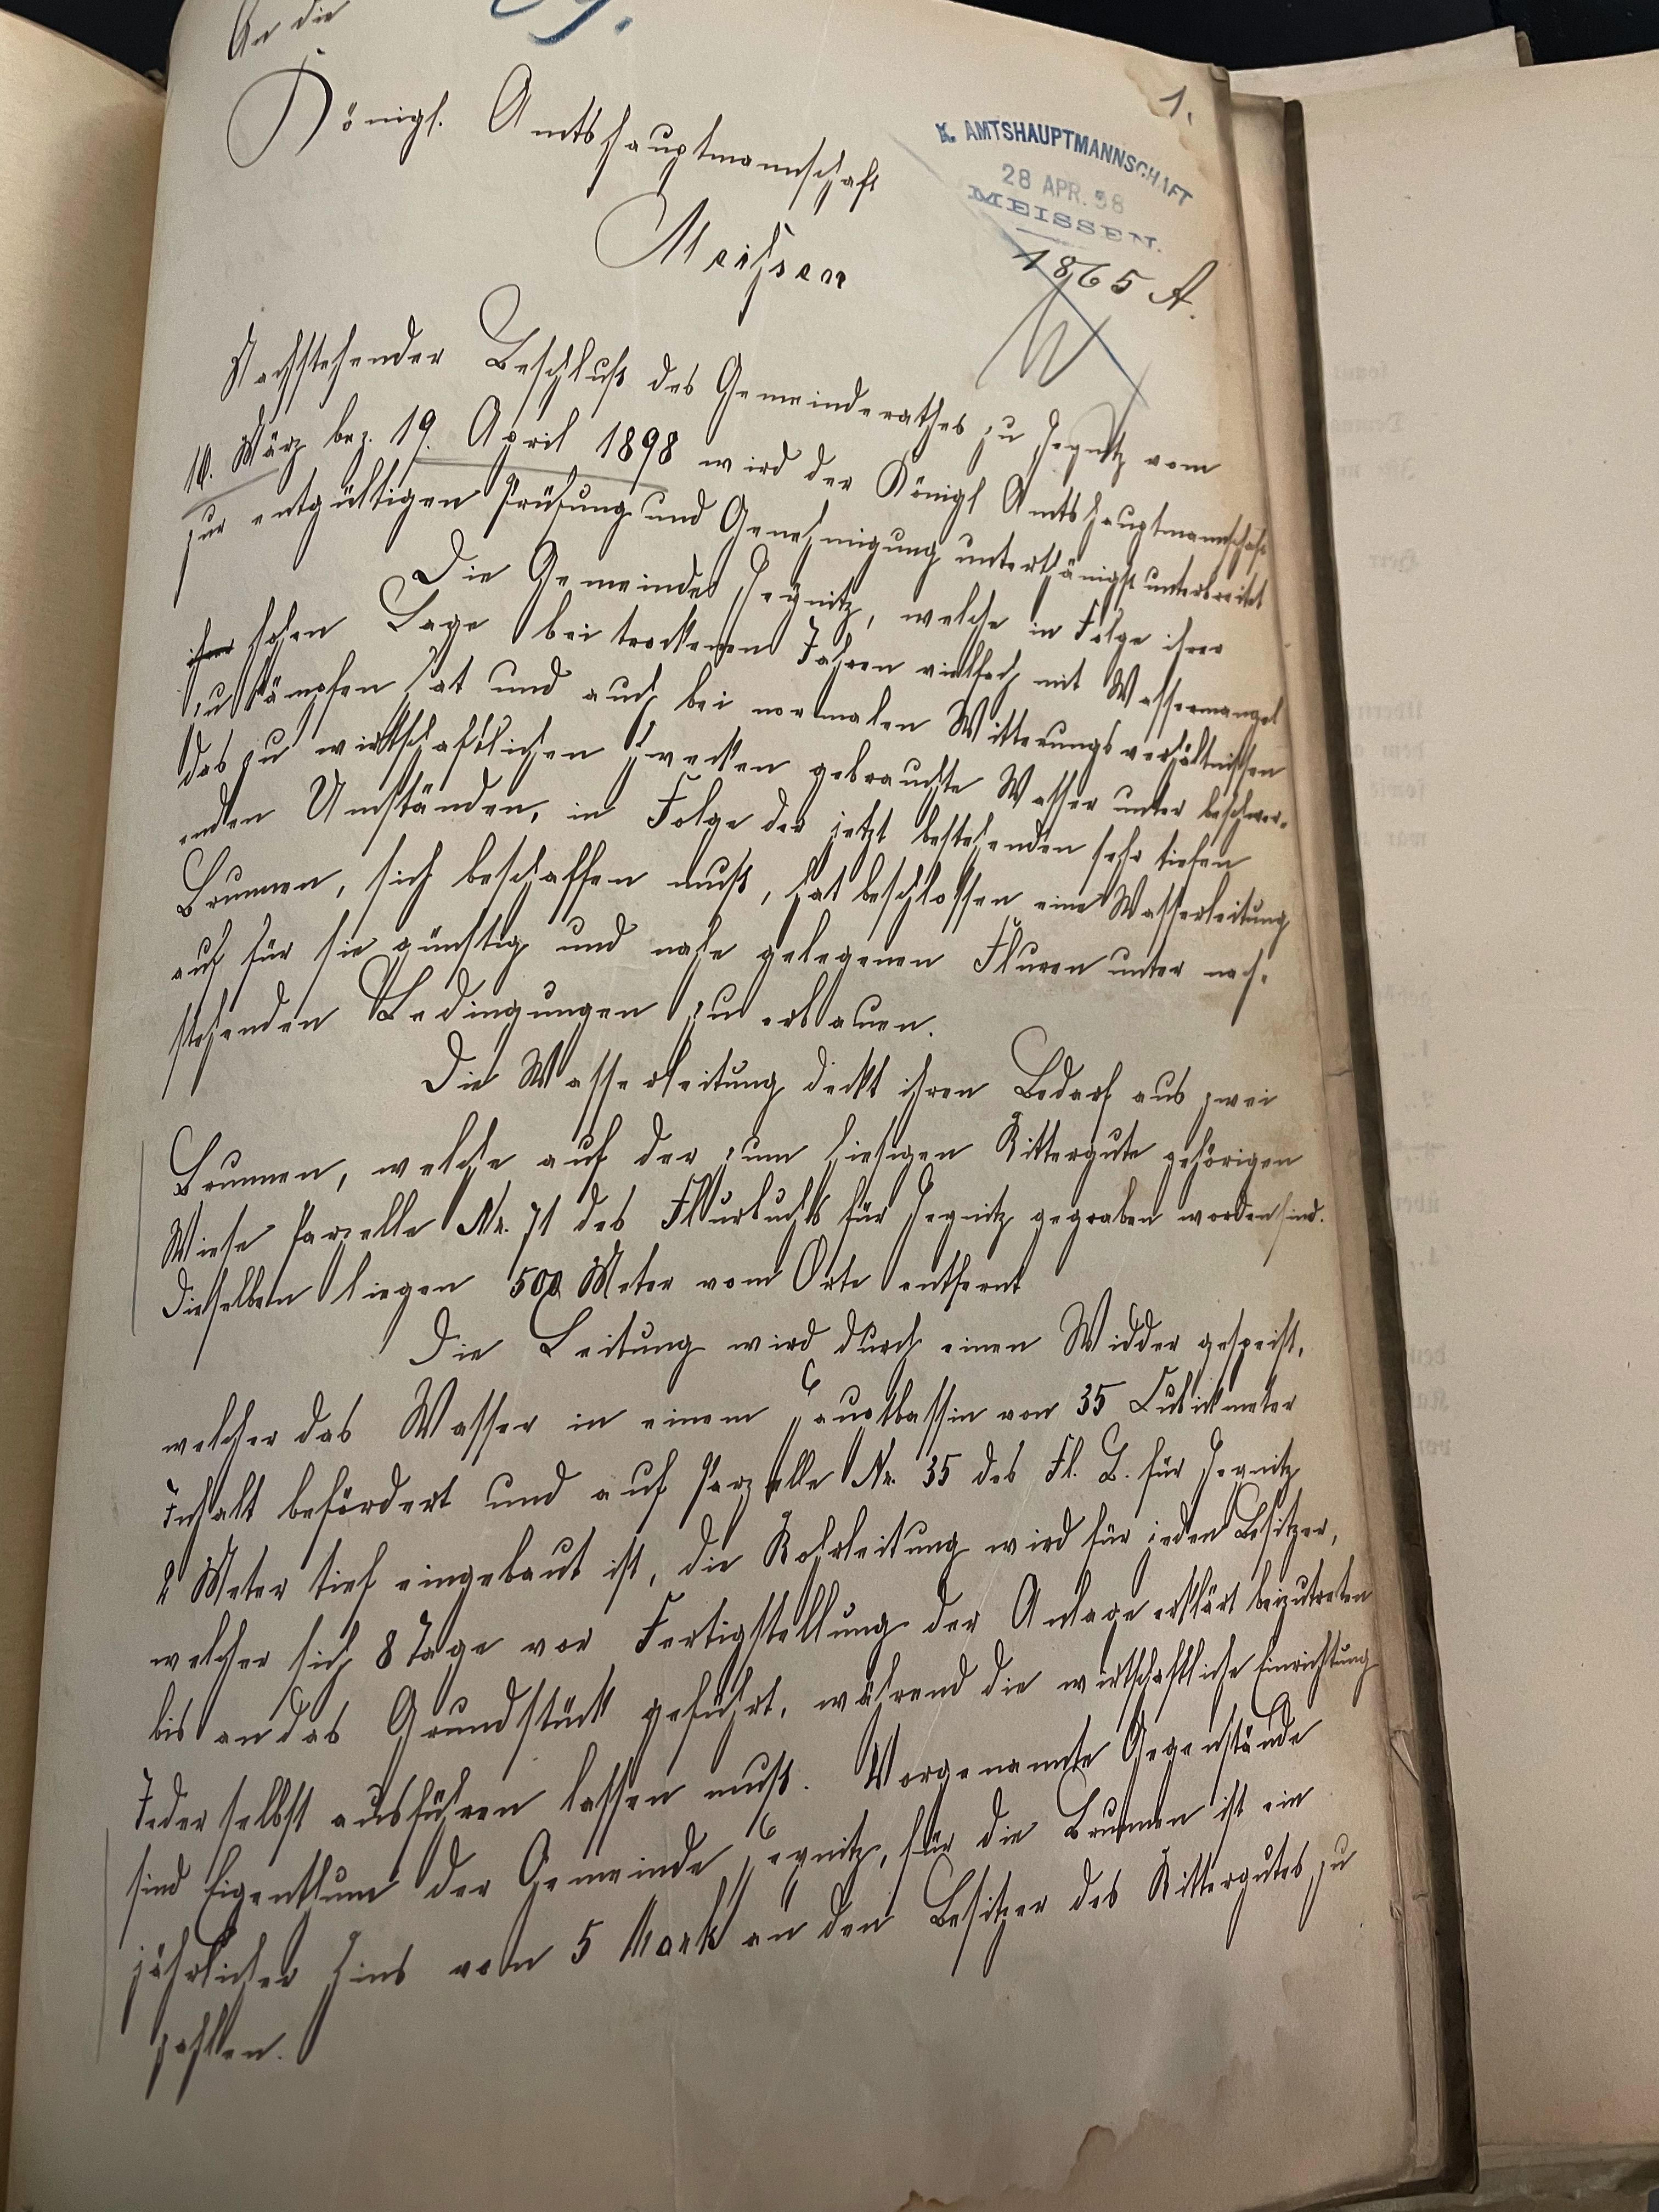 An die
1.
Königl. Amtshauptmannschaft
K. AMTSHAUPTMANNSCHAFT
28 APR. 98
MEISSEN.
Meißen
1865 A.
Nachstehender Beschluß des Gemeinderathes zu Jeßnitz vom
März bez. 19. April 1898 wird der Königl Amtshauptmannschaft
zur entgültigen Prüfung und Genehmigung unterthänigst unterbreitet
Die Gemeinde welche in Folge ihrer
ihrer hohen Lage bei trockenen Jahren vielfach mit Wassermangel
zu kämpfen hat und auch bei normalen Witterungsverhältnissen
das zu wirthschaftlichen Zwecken gebrauchte Wasser unter beschwer-
enden Umständen, in Folge der jetzt bestehenden sehr tiefen
Brunnen, sich beschaffen muß, hat beschlossen eine Wasserleitung
auf für sie günstig und nahe gelegenen Fluren unter nach-
stehenden Bedingungen zu erbauen.
Die Wasserleitung deckt ihren Bedarf aus zwei
Brunnen, welche auf der zum hiesigen Rittergute gehörigen
Wiese Parzelle Nr. 71 des Flurbuchs für gegraben worden sind.
Dieselben liegen 500 Meter vom Orte entfernt
Die Leitung wird durch einen Widder gespeist,
welcher das Wasser in einem Hauptbassin von 35 Cubikmeter
Inhalt befördert und auf Parzelle Nr. 35 des Fl. B. für
2 Meter tief eingebaut ist, die Rohrleitung wird für jeden Besitzer,
welcher sich 8 Tage vor Fertigstellung der Anlage erklärt beizutreten
bis an das Grundstück geführt, während die wirthschaftliche Einrichtung
Jeder selbst ausführen lassen muß. Vorgenannte Gegenstände
sind Eigenthum der Gemeinde für die Brunnen ist ein
jährlicher Zins von 5 Mark an den Besitzer des Rittergutes zu
zahlen.